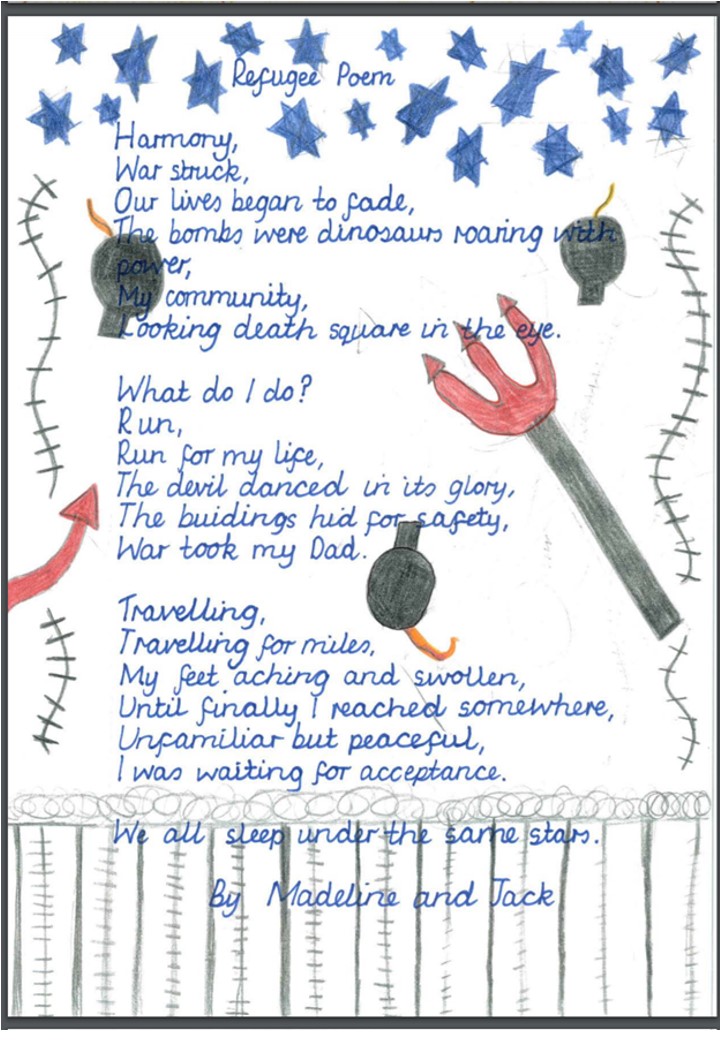 Refugee Poem
Harmony,
War struck,
Our lives began to fade,
The bombs were dinosaurs roaring with
power,
My community,
Looking death square in the eye.
What do I do?
Run,
Run for my life,
The devil danced in its glory,
The buidings hid for safety,
War took my Dad.
Travelling,
Travelling for miles,
My feet aching and swollen,
Until finally I reached somewhere,
Unfamiliar but peaceful,
I was waiting for acceptance.
We all sleep under the same stars.
By Madeline and Jack